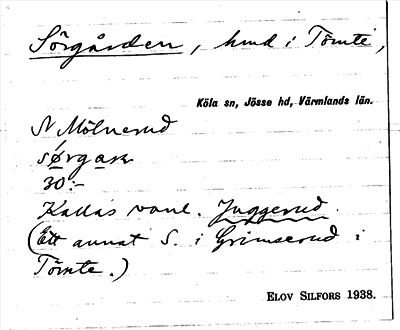 Sörgården, hmd i Tömte,
Köla sn, Jösse hd, Värmlands län.
N Mölnerud
sørgaɽn
30:-
Kallas vanl. Juggerud.
(Ett annat S. i Grimserud i
Tömte.)
ELOV SILFORS 1938.